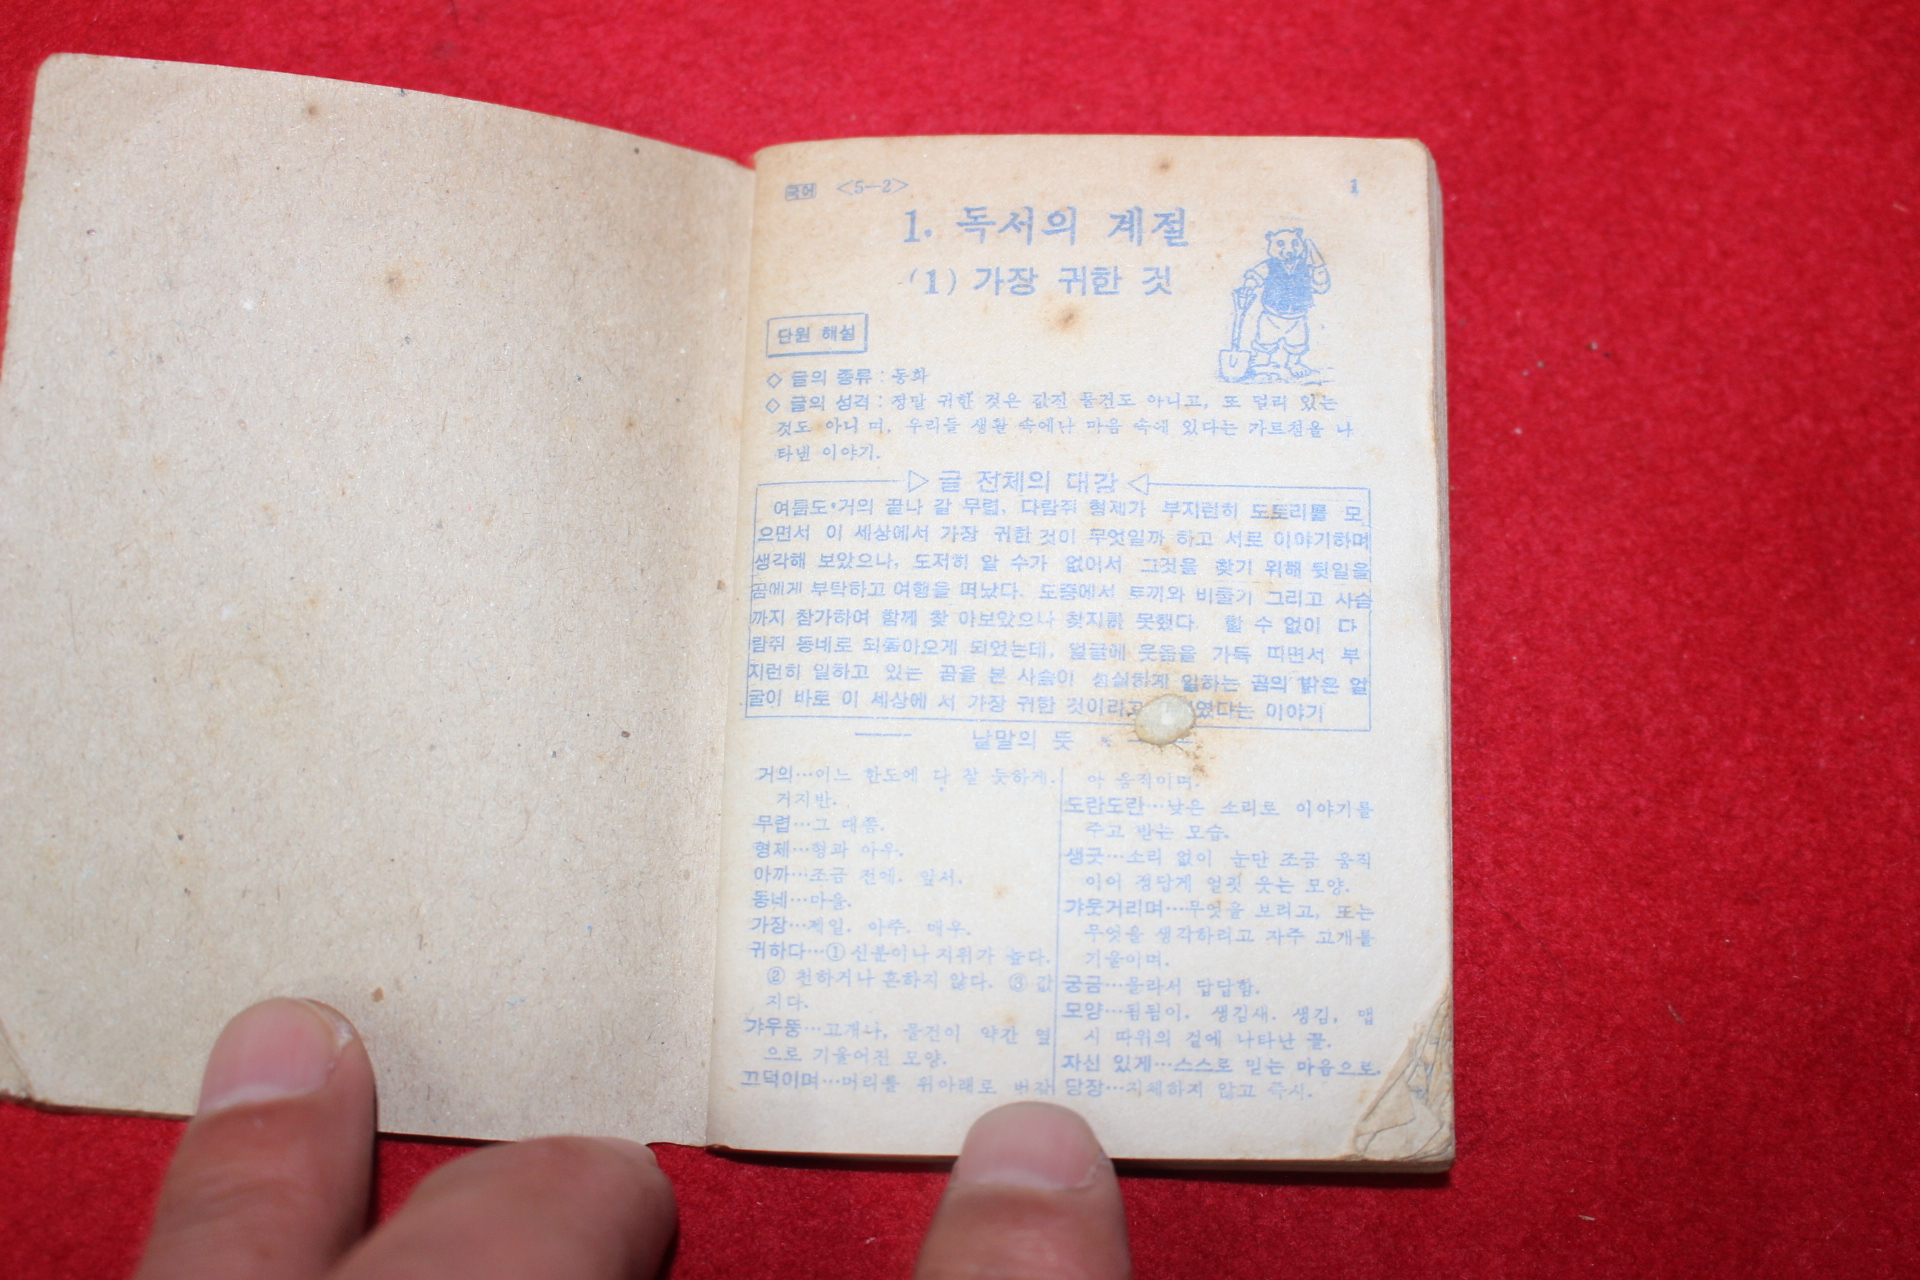 국어 <5—2> 1
1. 독서의 계절
(1) 가장 귀한 것
단원 해설
◇ 글의 종류 : 동화
◇ 글의 성격 : 정말 귀한 것은 값진 물건도 아니고, 또 멀리 있는
것도 아니 며, 우리들 생활 속에난 마음 속에 있다는 가르침을 나
타낸 이야기.
▷ 글 전체의 대강 ◁
여름도 거의 끝나 갈 무렵, 다람쥐 형제가 부지런히 도토리를 모
으면서 이 세상에서 가장 귀한 것이 무엇일까 하고 서로 이야기하며
생각해 보았으나, 도저히 알 수가 없어서 그것을 찾기 위해 뒷일을
곰에게 부탁하고 여행을 떠났다. 도중에서 토끼와 비둘기 그리고 사슴
까지 참가하여 함께 찾 아보았으나 찾지를 못했다. 할 수 없이 다
람쥐 동네로 되돌아오게 되었는데, 얼굴에 웃음을 가득 띠면서 부
지런히 일하고 있는 곰을 본 사슴이 성실하게 일하는 곰의 밝은 얼
굴이 바로 이 세상에 서 가장 귀한 것이라고 였다는 이야기
낱말의 뜻
거의…어느 한도에 다 찰 듯하게.
거지반.
무렵…그 때쯤.
형제…형과 아우.
아까…조금 전에. 앞서.
동네…마을.
가장…제일. 아주. 매우.
귀하다…① 신분이나 지위가 높다.
② 천하거나 흔하지 않다. ③ 값
지다.
갸우뚱…고개나, 물건이 약간 옆
으로 기울어진 모양.
끄덕이며…머리를 위아래로 번갈
아 움직이며.
도란도란…낮은 소리로 이야기를
주고 받는 모습.
생긋…소리 없이 눈만 조금 움직
이어 정답게 얼핏 웃는 모양.
갸웃거리며…무엇을 보려고, 또는
무엇을 생각하려고 자주 고개를
기울이며.
궁금…몰라서 답답함.
모양…됨됨이. 생김새. 생김, 맵
시 따위의 겉에 나타난 꼴.
자신 있게…스스로 믿는 마음으로.
당장…지체하지 않고 즉시.